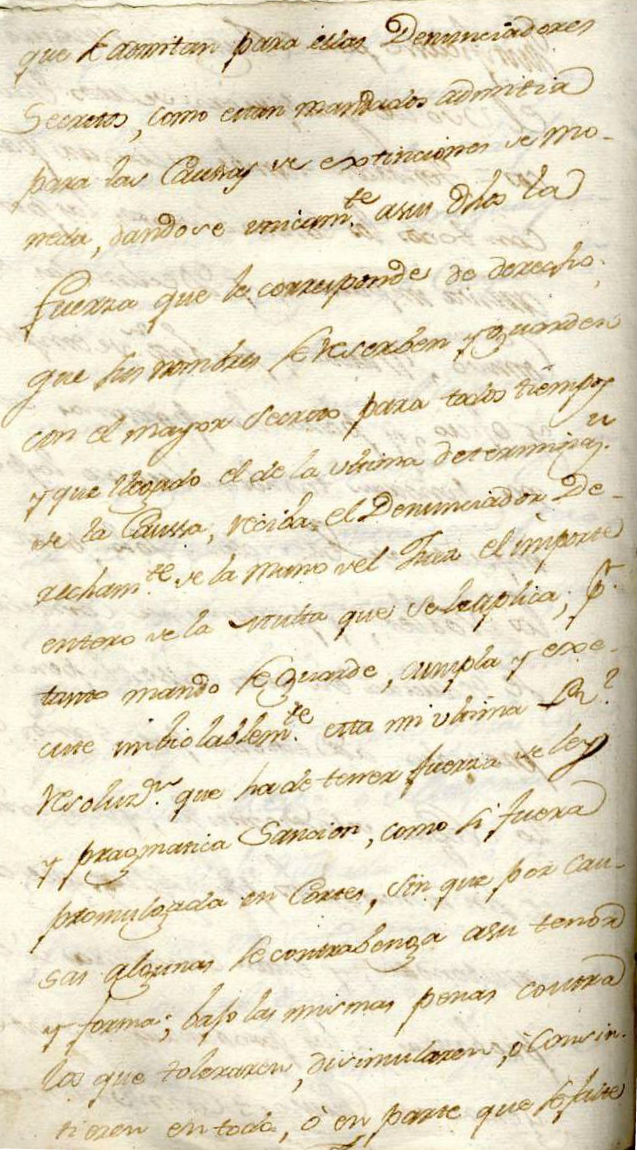 que se admitan para estas Denunciadores
Secretos, como estan mandados admitir
para las Caussas de extinciones de mo-
neda, dandose unicam.te a sus dhos la
fuerza que le corresponde de derecho,
que sus nombres se reserben y guarden
con el mayor secreto para todos tiempos
y que llegado el de la ultima determinaz.n
de la Caussa, reciba el Denunciador De-
recham.te de la mano del Juez el importe
entero de la multa que se le aplica; P.r
tanto mando se guarde, cumpla y exe-
cute imbiolablem.te esta mi ultima R.l
resoluz.on que ha de tener fuerza de ley
y pragmatica Sancion, como si fuera
promulgada en Cortes, sin que por cau-
sas algunas se contrabenga a su tenor
y forma; bajo las mismas penas contra
los que toleraren, disimularen, ò Consin-
tieren en todo, ò en parte que se falte